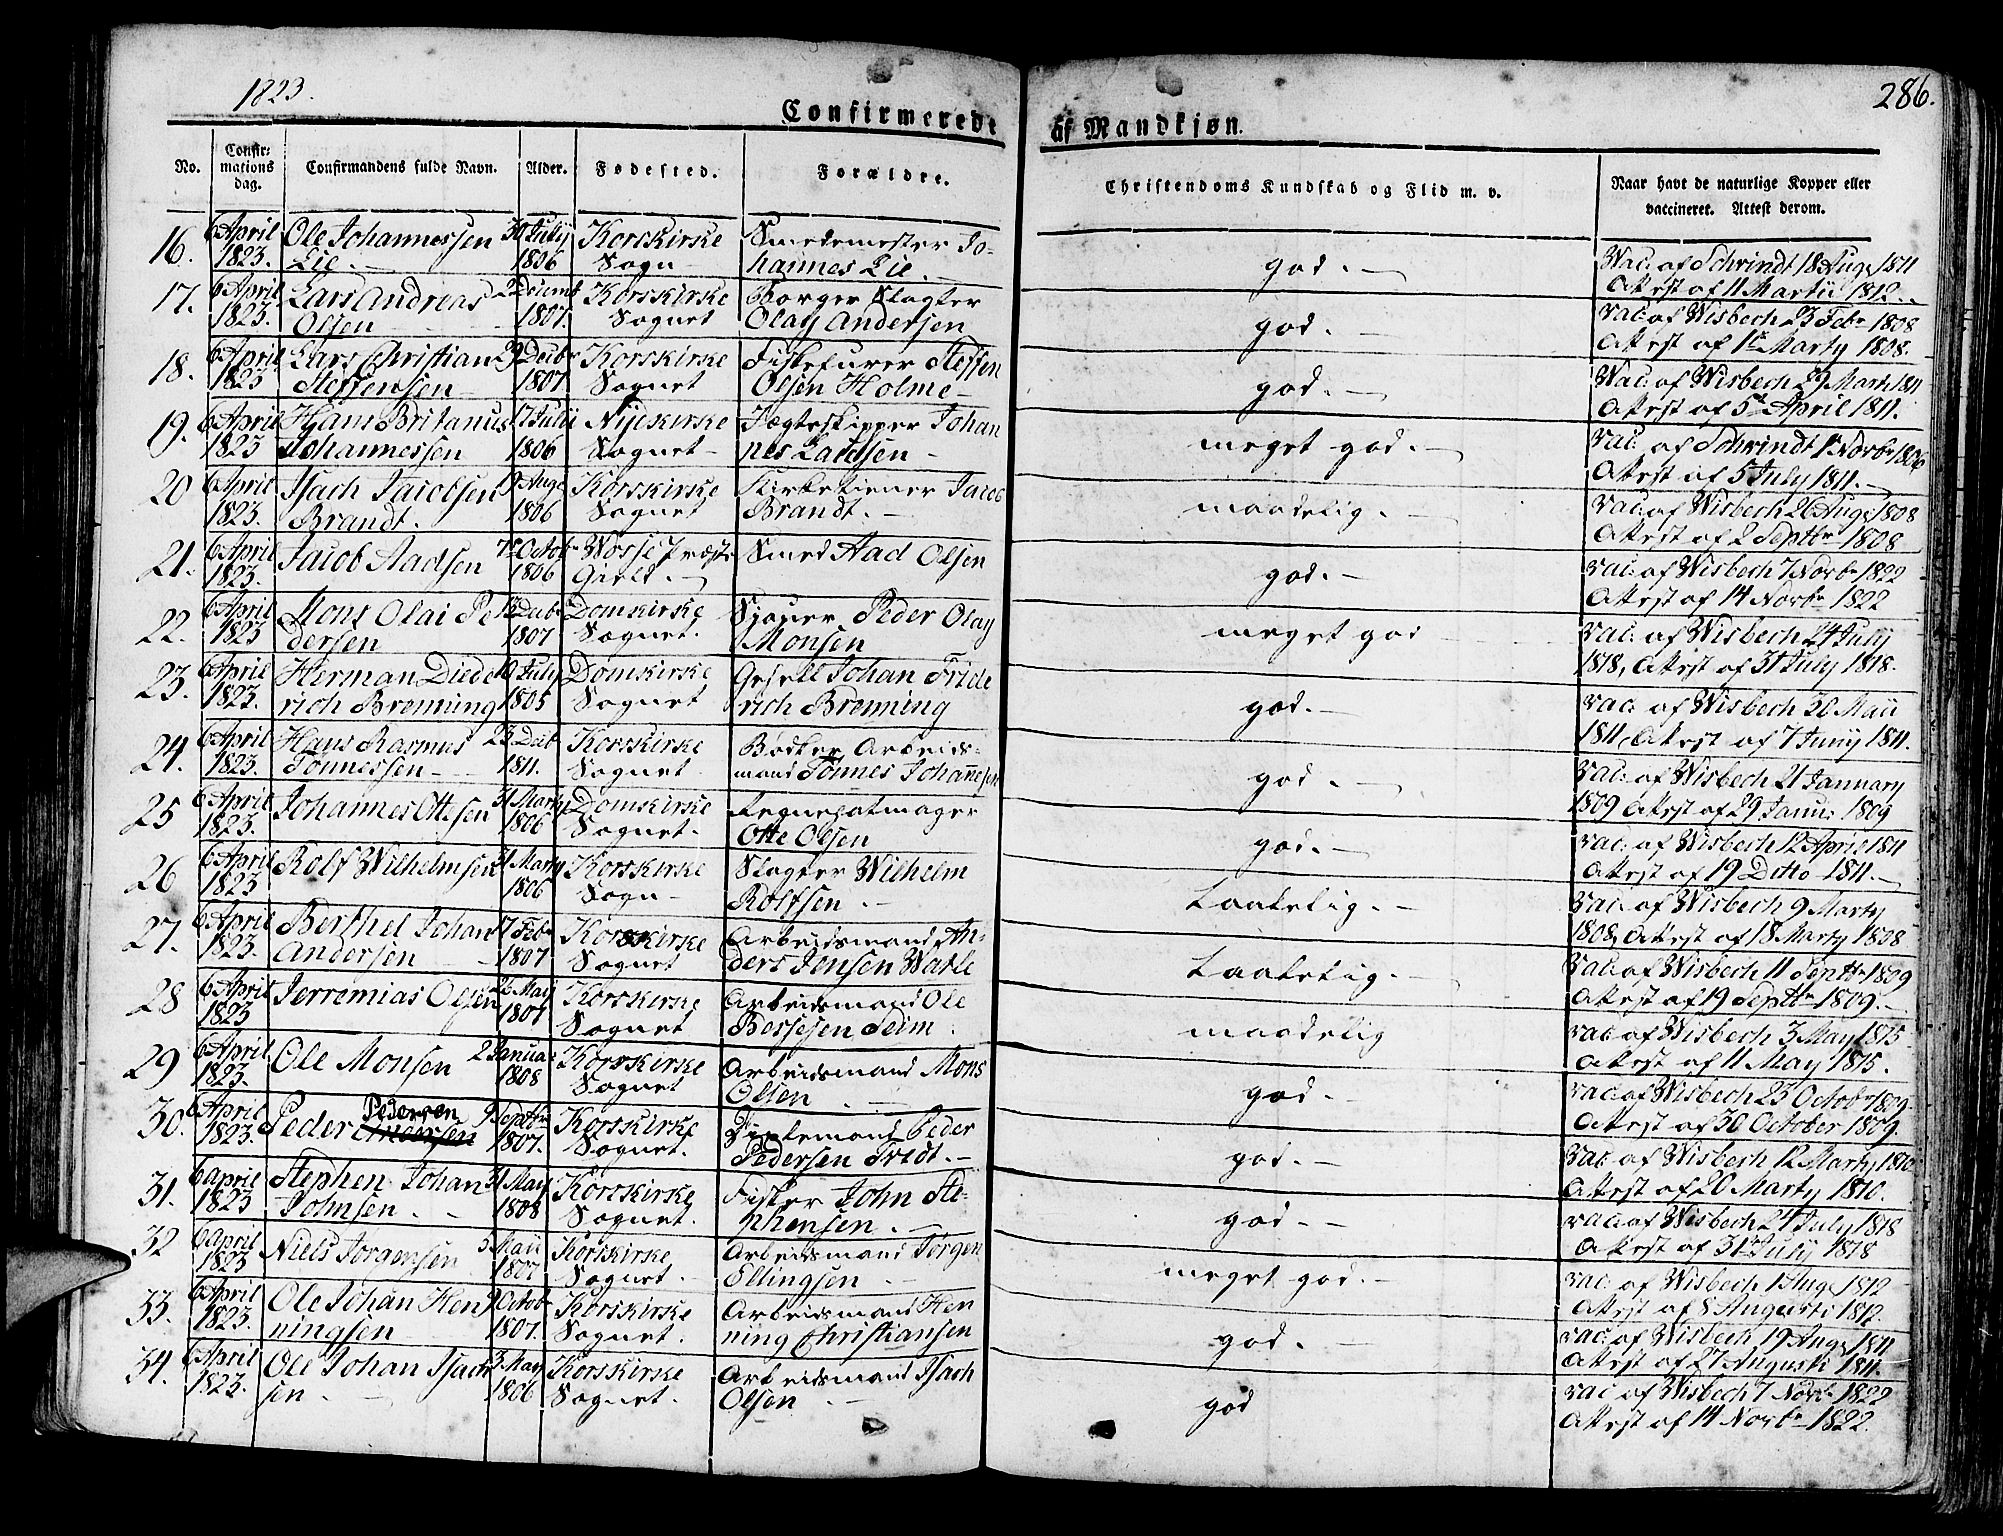 1823.
286.
Confirmerede af Mandkjøn.
No.
Confir:
mations
dag.
Confirmandens fulde Navn.
Alder.
Fødested.
Forældre.
Christendoms Kundskab og Flid m. v.
Naar havt de naturlige Kopper eller
vaccineret. Attest derom.
16. 6 April Ole Johannessen 30 July Korskirke Smedemester Jo-
1823. Lie. 1806 Sogn hannes Lie. god. Vac. af Schrindt 18 Aug 1811
Attest af 11 Martii 1812.
17. 6 April Lars Andreas Korskirke Borger Slagter
1823. Olsen 1807. Sognet Olay Andersen god. vac. af Wisbech 23 Febr 1808
Attest af 1 Marty 1808.
18. 6 April Lars Christian Korskirke Steffen
1823 Steffensen 1807. Sognet Olsen Holme god. Vac. af Wisbech 29 Marti 1811
Attest af 5 April 1811.
19. 6 April Hans Britanus 17 Julii Nykirke Jægteskipper Johan
1823 Johannessen 1806 Sognet nes meget god. vac. af Schrindt 1 Novbr 1806
Attest af 5 July 1811.
20 6 April Isach Jacobsen 9 Aug Korskirke Kirketiener Jacob
1823. Brandt. 1806 Sognet Brandt. maadelig. vac. af Wisbech 26 Aug 1808
Attest af 2 Septbr 1808
21. 6 April Jacob Aadsen 7 Octob Wosse Præste Smed Aad Olsen
1823. 1806 Gield. god. vac. af Wisbech 7 Novbr 1822
Attest af 14 Novbr 1822
22. 6 April Mons Olai Pe 13 Decbr Domkirke Peder Olay
1823 dersen 1807 Sognet. Monsen meget god vac. af Wisbech 24 July
1818, Attest af 31 July 1818.
23. 6 April Herman Diede 10 July Domkirke Gesell Johan Fride
1823. rich Brenning 1805 Sognet rich Brenning god. vac. af Wisbech 30 Maii
1811, Attest af 7 Junij 1811.
24. 6 April Hans Rasmus 23 Korskirke Bødker Arbeids-
1823. Tönnessen 1811. Sognet mand Tönnes Johannesen god. vac. af Wisbech 21 January
1809 Attest af 29 Janu: 1809
25 6 April Johannes Ottesen 31 Marty Domkirke
1823. 1806 Sognet. Otte Olsen god. vac. af Wisbech 12 April 1811
Attest af 19 Ditto 1811.
26 6 April Rolf Wilhelmsen 31 Marty Korskirke Slagter Wilhelm
1823 1806 Sogn Rolfsen. Laatelig. vac. af Wisbech 9 Marty
1808, Attest af 18 Marty 1808
27. 6 April Berthel Johan 17 Febr Korskirke Arbeidsmand An-
1823. Andersen 1807 Sognet ders Jensen Watle Laatelig. vac. af Wisbech 11 Septbr 1809
Attest af 19 Septbr 1809.
28 6 April Jerremias Olsen 26 Maij Korskirke Arbeidsmand Ole
1823 1807 Sognet Bessesen Seim. maadelig vac af Wisbech 3 May 1815
Attest af 11 May 1815.
29 6 April Ole Monsen 2 Januar Korskirke Arbeidsmand Mons
1823. 1808 Sognet Olsen. god. vac. af Wisbech 23 Octobr 1809.
Attest af 30 October 1809.
30. 6 April Peder Pedersen Andersen 9 Septbr Korskirke Peder
1823. 1807. Sognet. Pedersen Tridt. god. vac af Wisbech 12 Marty 1810
Attest af 20 Marty 1810.
31. 6 april Stephen Johan 31 May Korskirke Fisker John Ste-
1823 Johnsen. 1808 Sognet. phensen. god. vac. af Wisbech 24 July 1818
Attest af 31 July 1818
32 6 April Niels Jorgensen 3 Maii Korskirke Arbeidsmand Jørgen
1823 1807 Sognet. Ellingsen. meget god. vac. af Wisbech 1 Aug 1812
Attest af 8 Augusti 1812.
33. 6 April Ole Johan Hen Octobr Korskirke Arbeidsmand Hen
1823. ningsen 1807. Sognet. ning Christiansen god. vac. af Wisbech 19 Aug 1811
Attest af 27 Augusti 1811.
34. 6 April Ole Johan Isach 3. May Korskirke Arbeidsmand Isach
1823. sen. 1806 Sognet. Olsen god vac af Wisbech 7 Novbr 1822
Attest af 14 Novbr 1822.